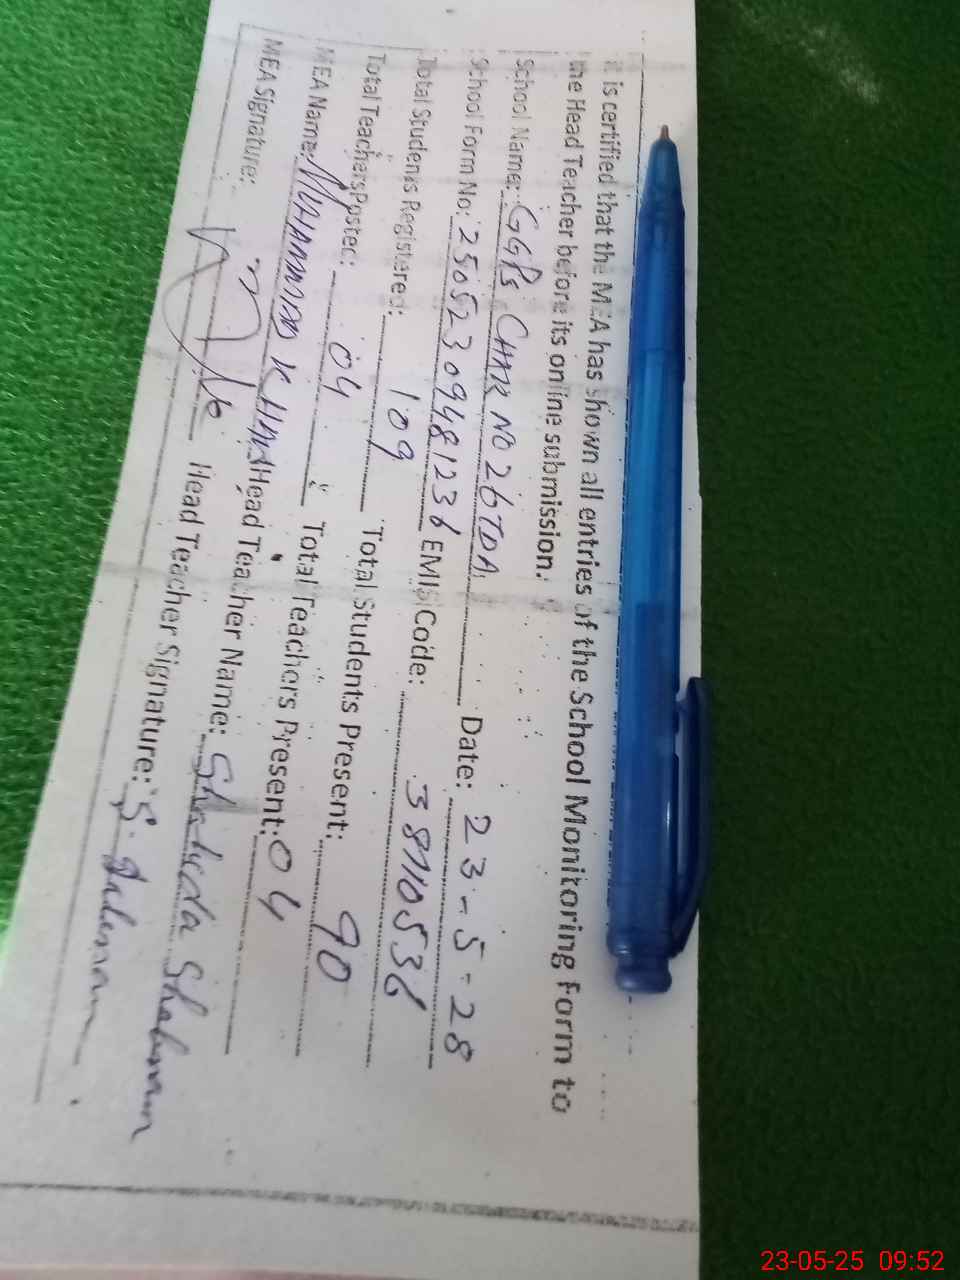 it is certified that the MEA has shown all entries of the School Monitoring Form to
the Head Teacher before its online submission.
School Name: GGPS CHAK NO 26TDA Date: 23-5-28
School Form No: 25052309481236 EMIS Code: 38710536
Total Students Registered: 109 Total Students Present: 90
Total Teachers Posted: 04 Total Teachers Present: 04
MEA Name: MUHAMMAD KHAN Head Teacher Name: Shaheda Shaheen
MEA Signature: Head Teacher Signature: S.
23-05-25 09:52